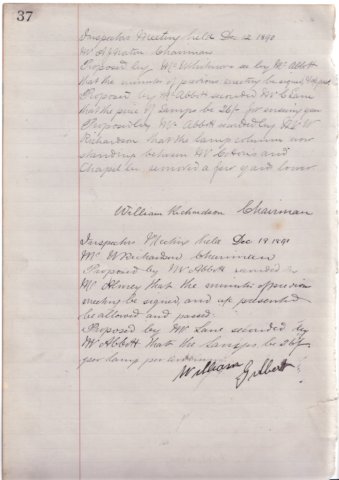 37
Inspectors Meeting held Dec 12 1890
Mr Chairman
Proposed by Mr Whitmore se by Mr Abbott
that the minutes of previous meeting be signed
Proposed by Mr Abbott seconded Mr Lane
that the price of Lamps be 26/- for ensuing year
Proposed by Mr Abbott seconded by Mr W
Richardson that the lamp column now
standing between Mr and
Chapel be removed a few yards lower.
William Richardson Chairman
Inspectors Meeting held Dec 19 1891
Mr W Richardson Chairman
Proposed by Mr Abbott seconded by
Mr that the minutes of previous
meeting be signed, and presented
be allowed and passed.
Proposed by Mr Lane seconded by
Mr Abbott that the Lamps be 26/-
per lamp per
William Gilbert